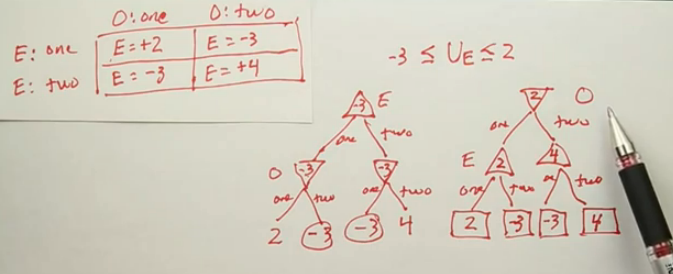 O: one O: two
E: one E=+2 E=-3
E: two E=-3 E=+4
-3 ≤ U_E ≤ 2
-3 E
one two
O -3 -3
one two one two
2 -3 -3 4
2 O
one two
E 2 4
one two two
2 -3 -3 4